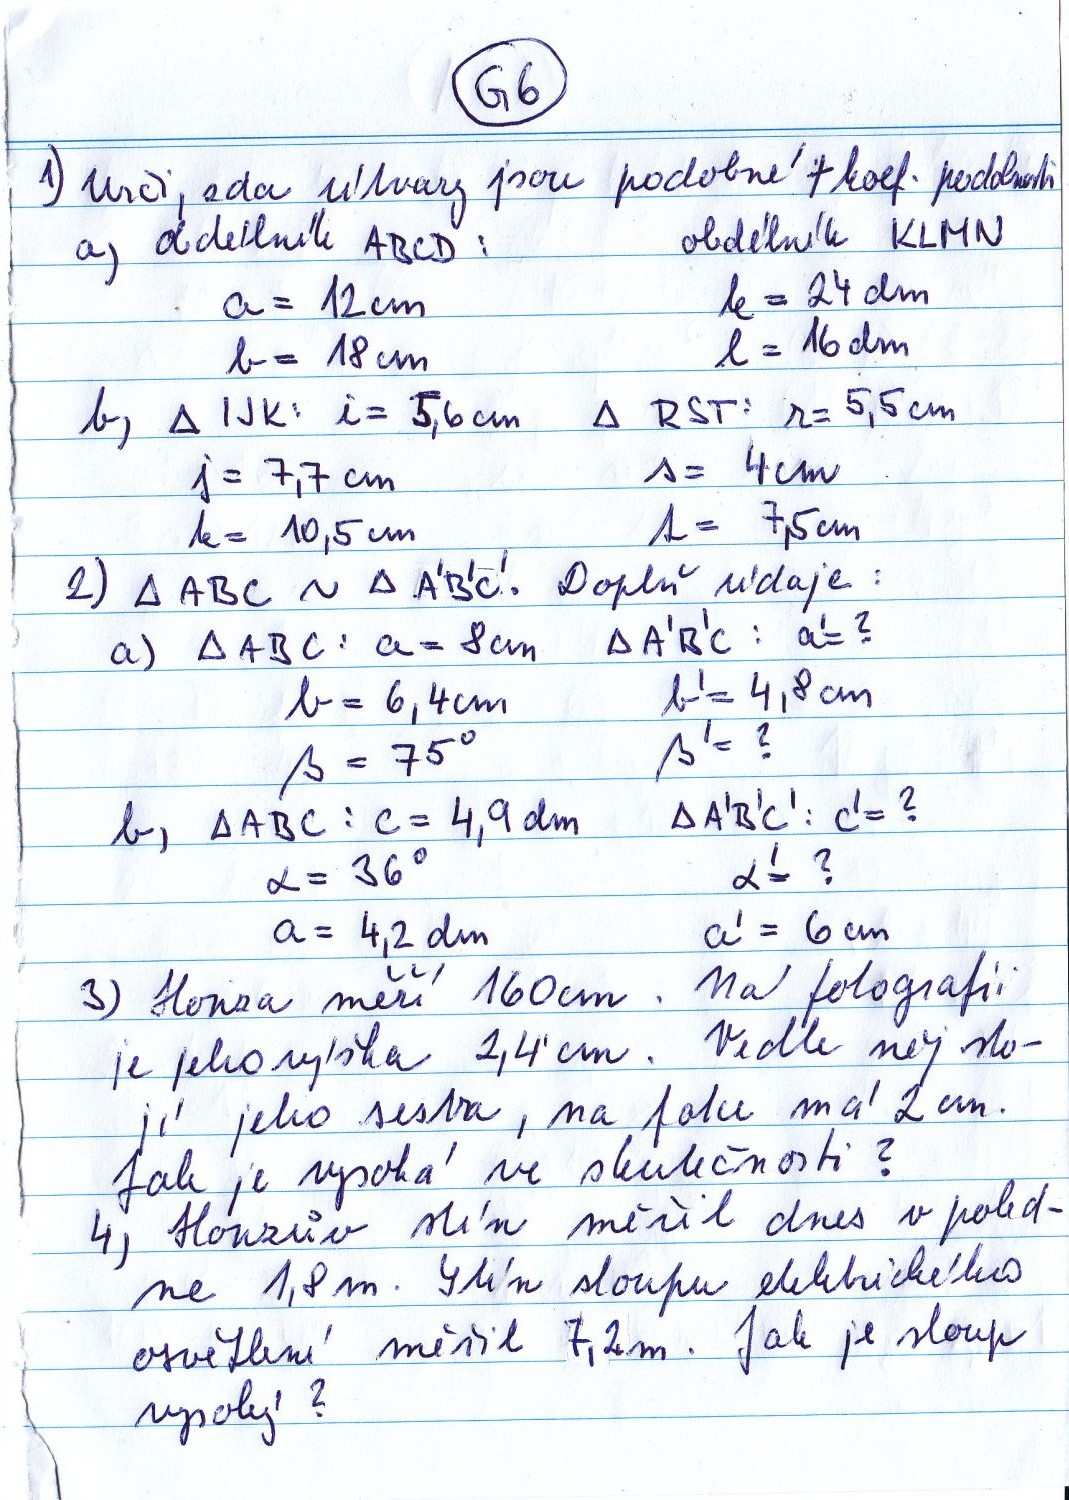 G6
1) Urči, zda útvary jsou podobné + koef. podobnosti
a) obdélník ABCD: obdélník KLMN
a = 12 cm k = 24 dm
b = 18 cm l = 16 dm
b) Δ IJK: i = 5,6 cm Δ RST: r = 5,5 cm
j = 7,7 cm s = 4 cm
k = 10,5 cm t = 7,5 cm
2) Δ ABC ~ Δ A'B'C'. Doplň údaje:
a) Δ ABC: a = 8 cm Δ A'B'C: a' = ?
b = 6,4 cm b' = 4,8 cm
β = 75° β' = ?
b) Δ ABC: c = 4,9 dm Δ A'B'C': c' = ?
α = 36° α' = ?
a = 4,2 dm a' = 6 cm
3) Honza měří 160 cm. Na fotografii
je jeho výška 2,4 cm. Vedle něj sto-
jí jeho sestra, na fotce má 2 cm.
Jak je vysoká ve skutečnosti?
4) Honzův stín měřil dnes v poled-
ne 1,8 m. Stín sloupu elektrického
osvětlení měřil 7,2 m. Jak je sloup
vysoký?